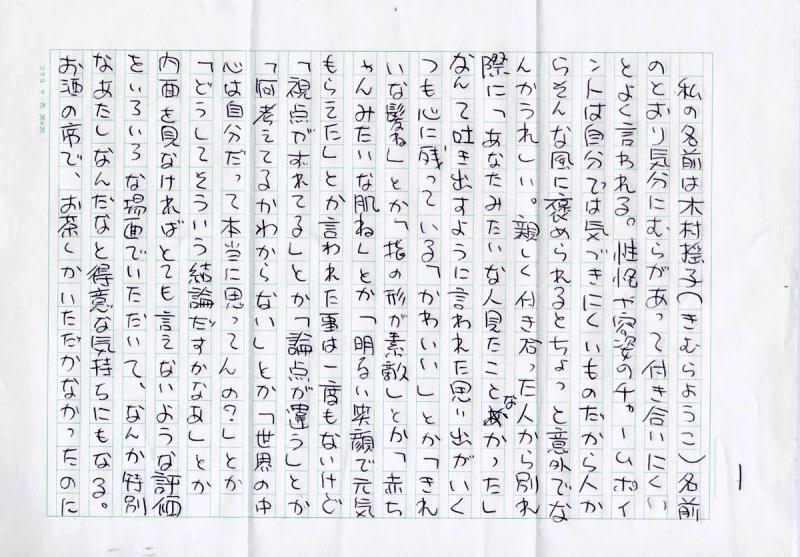 1
私の名前は木村揺子(きむらようこ)名前
のとおり気分にむらがあって付き合いにくい
とよく言われる。性格や容姿のチャームポイ
ントは自分では気づきにくいものだから人か
らそんな風に褒められるとちょっと意外でな
んかうれしい。親しく付き合った人から別れ
際に「あなたみたいな人見たことなかったし
なんて吐き出すように言われた思い出がいく
つも心に残っている「かわいい」とか「きれ
いな髪ね」とか「指の形が素敵」とか「赤ち
ゃんみたいな肌ね」とか「明るい笑顔で元気
もらえた」とか言われた事は一度もないけど
「視点がずれてる」とか「論点が違う」とか
「何考えてるかわからない」とか「世界の中
心は自分だって本当に思ってんの?」とか
「どうしてそういう結論だすかなあ」とか
内面を見なければとても言えないような評価
をいろいろな場面でいただいて、なんか特別
なあたしなんだなと得意な気持ちにもなる。
お酒の席で、お茶しかいただかなかったのに
コクヨ ケ-75 20×20